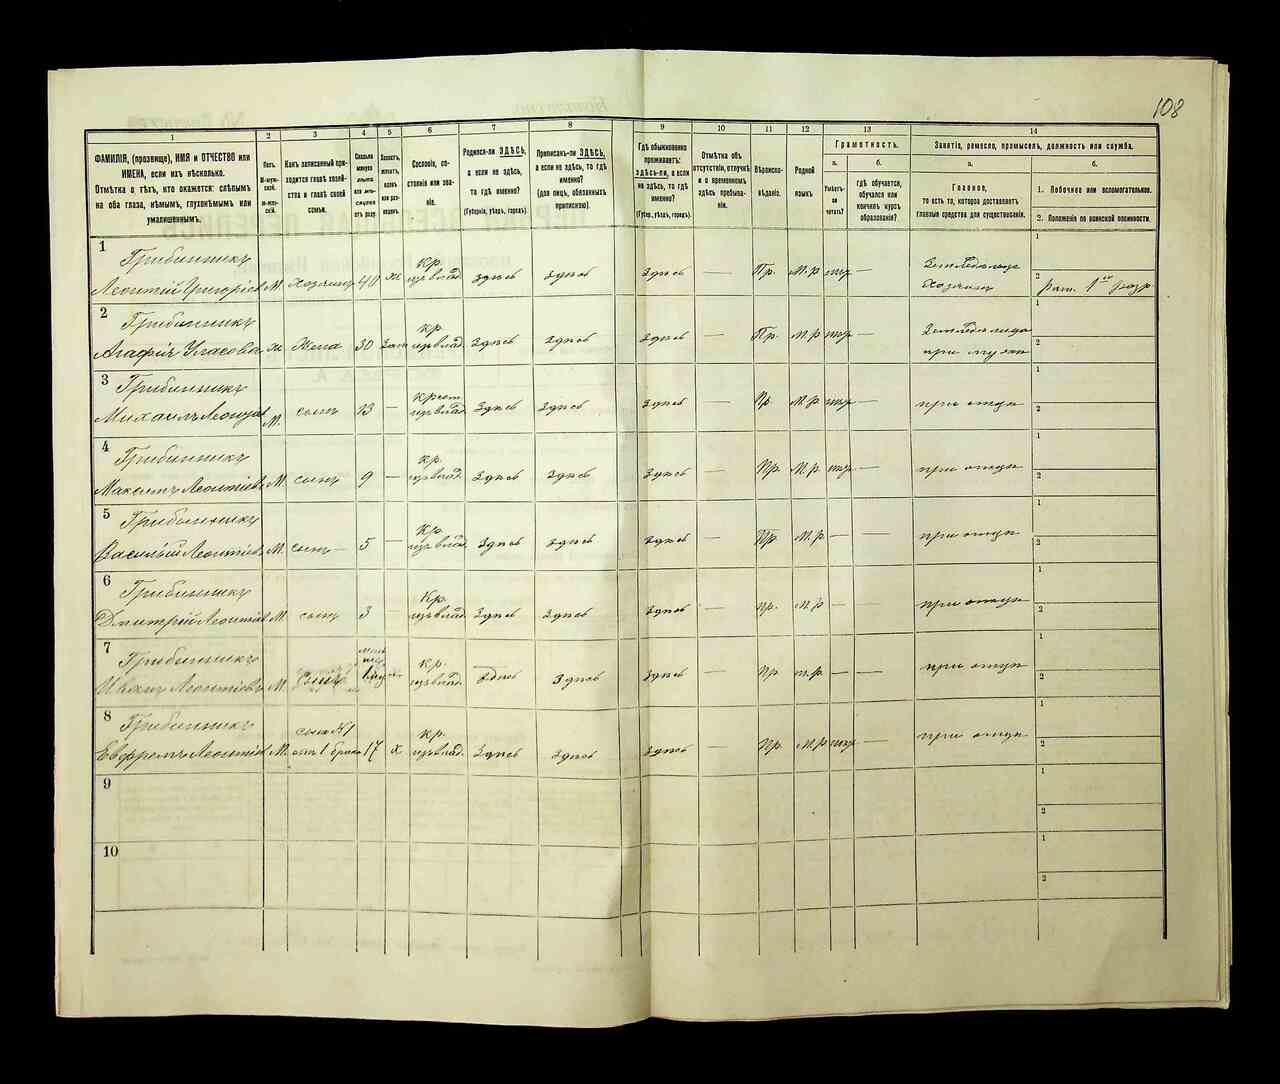 108
1 2 3 4 5 6 7 8 9 10 11 12 13 14
ФАМИЛІЯ, (прозвище), ИМЯ и ОТЧЕСТВО или
ИМЕНА, если ихъ нѣсколько.
Отмѣтка о тѣхъ, кто окажется: слѣпымъ
на оба глаза, нѣмымъ, глухонѣмымъ или
умалишеннымъ.
Полъ.
М-мужской.
Ж-женскій.
Какъ записанный при-
ходится главѣ хозяй-
ства и главѣ своей
семьи.
Сколько
минуло
лѣтъ
отъ роду.
Холостъ,
женатъ,
вдовъ
или раз-
веденъ.
Сословіе, со-
стояніе или зва-
ніе.
Родился-ли ЗДѢСЬ,
а если не здѣсь,
то гдѣ именно?
(Губернія, уѣздъ, городъ).
Приписанъ-ли ЗДѢСЬ,
а если не здѣсь, то гдѣ
именно?
(для лицъ, обязанныхъ
припискою).
Гдѣ обыкновенно
проживаетъ:
здѣсь-ли, а если
не здѣсь, то гдѣ
именно?
(Губер., уѣздъ, городъ).
Отмѣтка объ
отсутствіи, отлучкѣ
и о временномъ
здѣсь пребыва-
ніи.
Вѣроиспо-
вѣданіе.
Родной
языкъ.
Грамотность.
а. б.
Умѣетъ-
ли
читать?
гдѣ обучается,
обучался или
кончилъ курсъ
образованія?
Занятіе, ремесло, промыселъ, должность или служба.
а. б.
Главное,
то есть то, которое доставляетъ
главныя средства для существованія.
1. Побочное или вспомогательное.
2. Положеніе по воинской повинности.
1 Грибинникъ Кр. Земледѣлецъ 1
Леонтій Григоріев М. Хозяинъ 40 ж изъ влад. здѣсь здѣсь здѣсь — Пр. М.р — хозяинъ 2 рат. 1го разр
2 Грибинникъ кр. 1
Агафія Уласова Ж Жена 30 Зам изъ влад. здѣсь здѣсь здѣсь — Пр. М.р — при мужѣ 2
3 Грибинникъ крест. 1
Михаилъ Леонтіев М. сынъ 13 — изъ влад. здѣсь здѣсь здѣсь — Пр. М.р — при отцѣ 2
4 Грибинникъ кр. 1
Максимъ Леонтіев М. сынъ 9 — изъ влад. здѣсь здѣсь здѣсь — Пр. М.р. — при отцѣ 2
5 Грибинникъ Кр. 1
Василій Леонтіев М. сынъ — 5 — изъ влад. здѣсь здѣсь здѣсь — Пр. М.р. — — при отцѣ 2
6 Грибинникъ Кр. 1
Дмитрій Леонтіев М. сынъ 3 — изъ влад. здѣсь здѣсь здѣсь — пр. М.р — — при отцѣ 2
7 Грибинникъ кр. 1
Иванъ Леонтіевъ М. сынъ изъ влад. здѣсь здѣсь здѣсь — Пр м.р. — — при отцѣ 2
8 Грибинникъ сынъ №1 кр. 1
Евфремъ Леонтіев М. отъ 1 брака 17 х изъ влад. здѣсь здѣсь здѣсь — Пр. М.р — при отцѣ 2
9 1
2
10 1
2